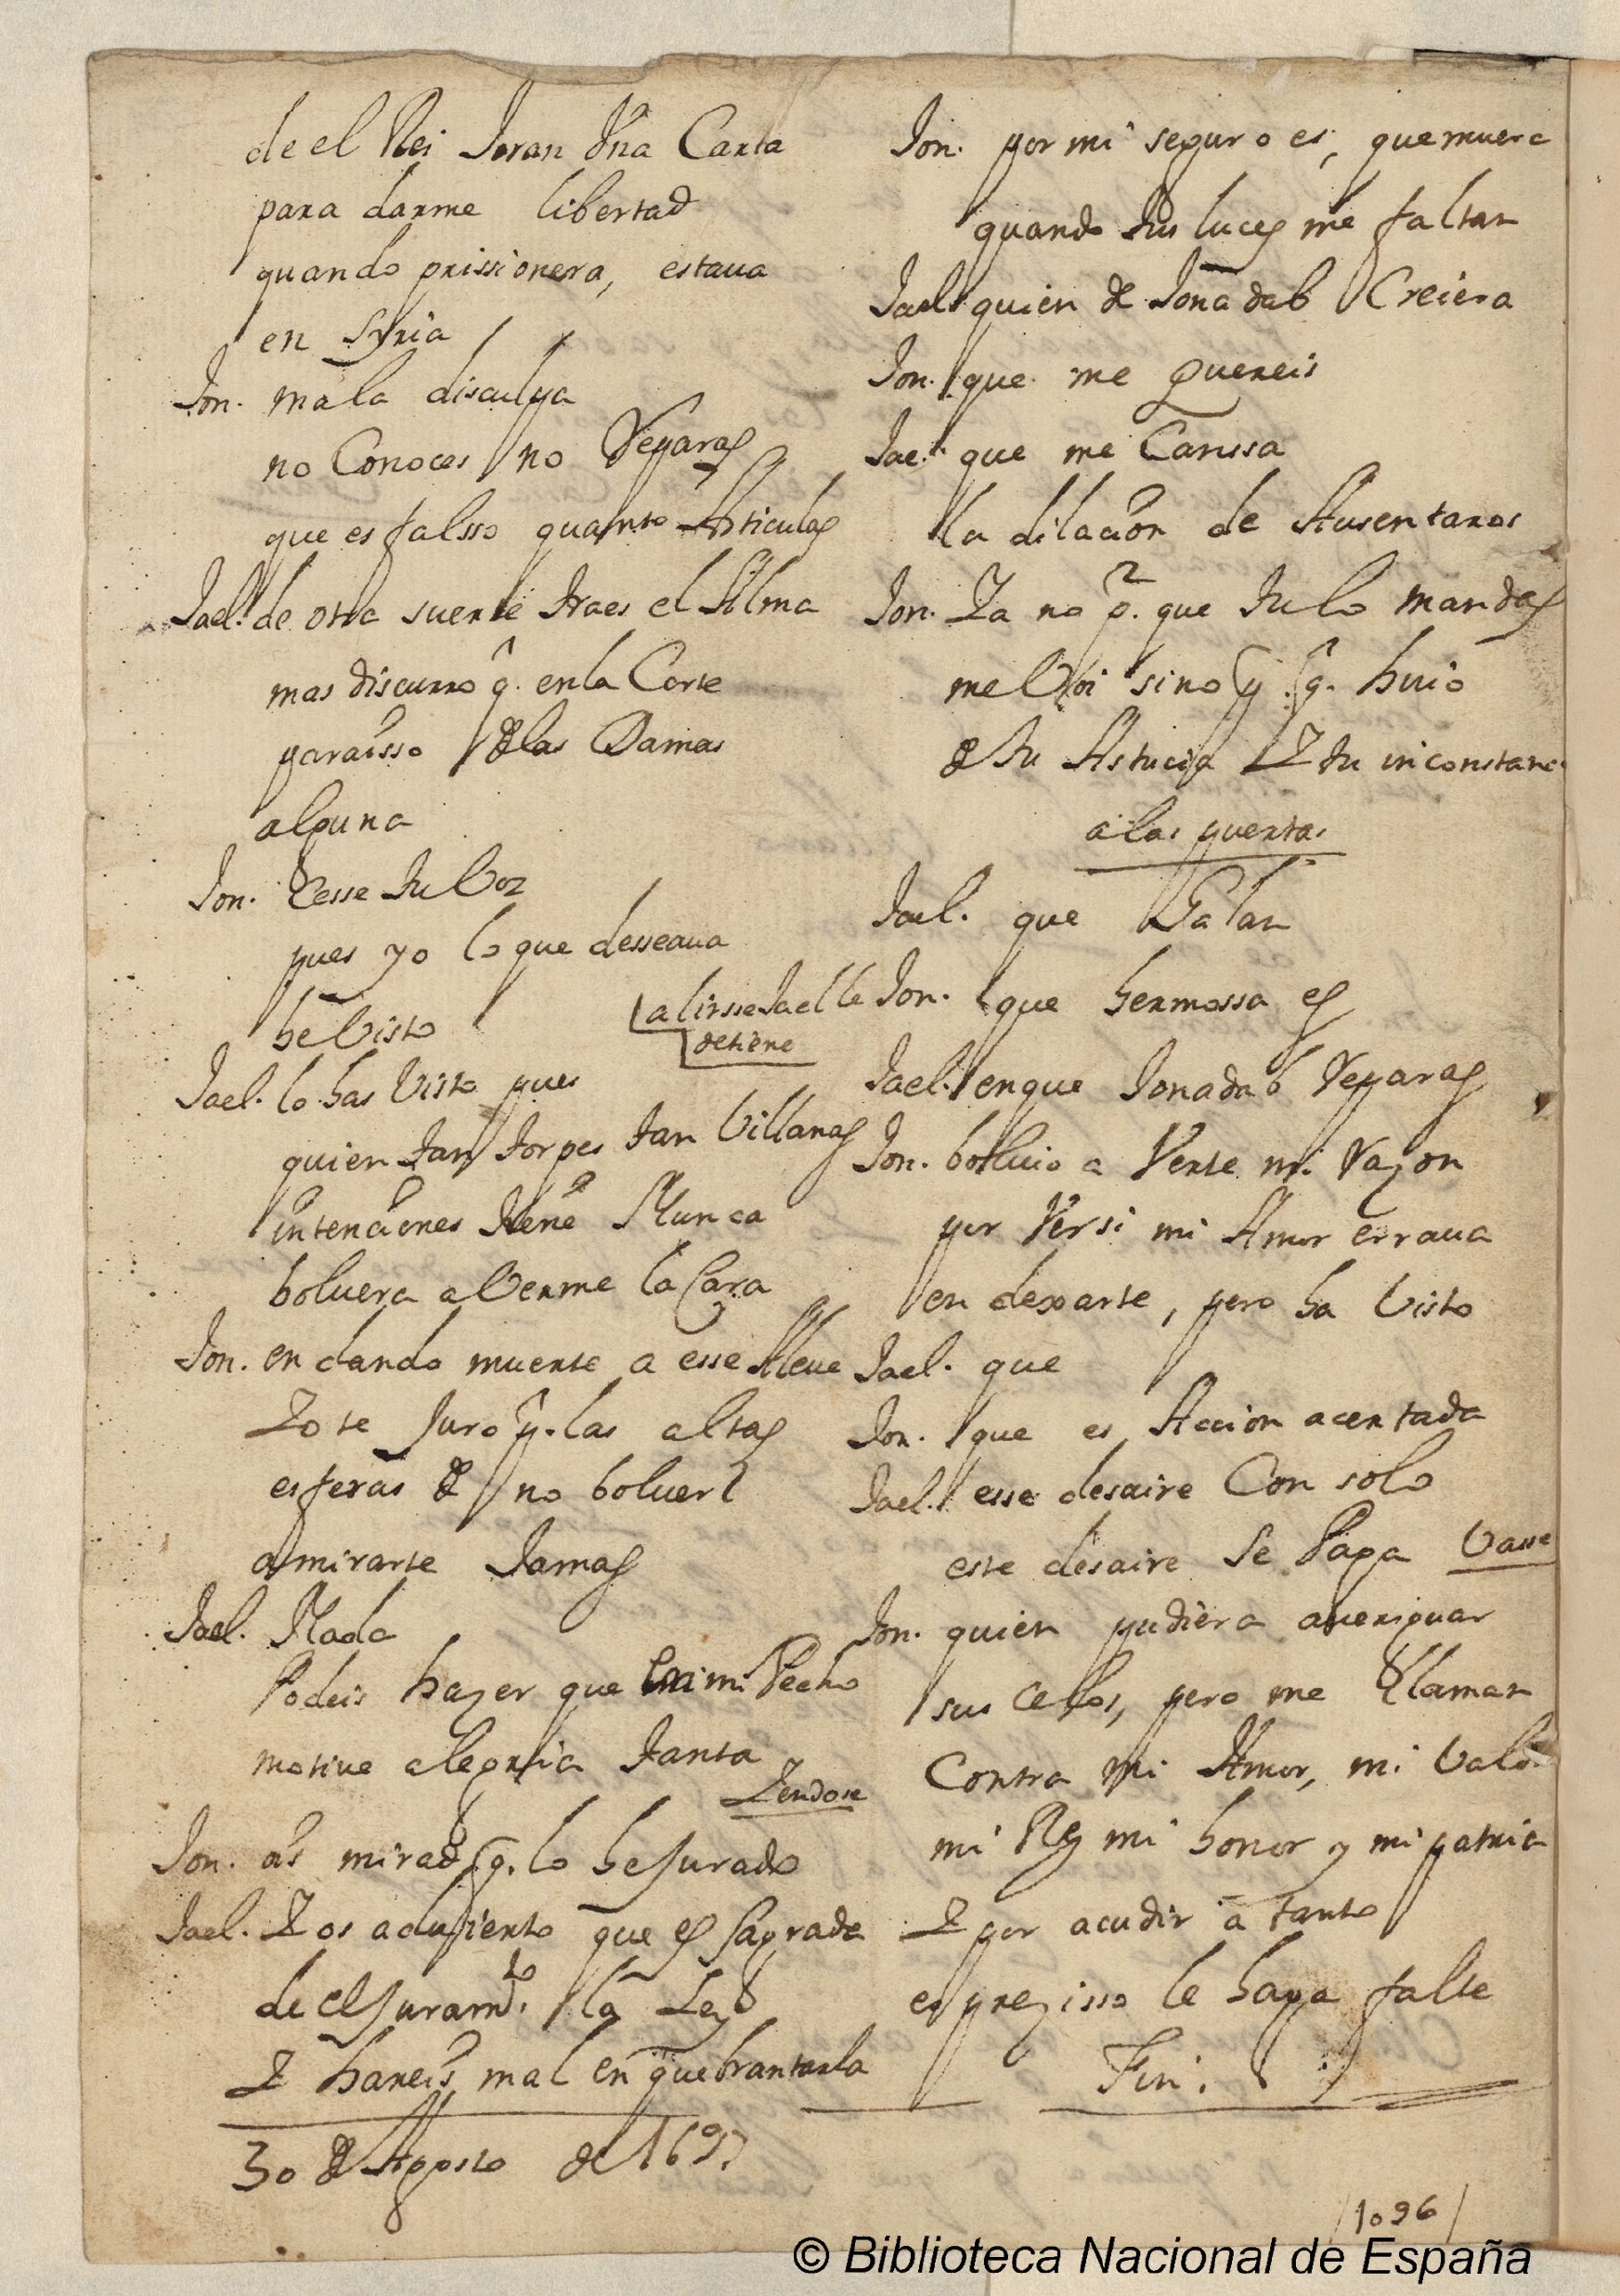 de el Rei Joran Vna Carta
para darme libertad
quando prissionera, estaua
en Syria
Jon. mala disculpa
no Conoces no Reparas
que es falsso quanto Articulas
Jael. de otra suerte traes el Alma
mas discurro q. en la Corte
paraisso de las Damas
alguna
Jon. Cesse tu Voz
pues yo lo que desseaua
he Visto
al irsse Jael le
detiene
Jael. lo has Visto pues
quien tan torpes tan Villanas
intenciones tiene Nunca
boluera a Verme la Cara
Jon. en dando muerte a esse Aleue
Yo te Juro p. las altas
esferas de no boluer
a mirarte Jamas
Jael. Nada
Podeis hazer que en mi Pecho
motiue alegria tanta
Yendose
Jon. as mirad q. lo he Jurado
Jael. Y os aduierto que es sagrada
de el Juramto. la Ley
Y hareis mal en quebrantarla
30 de Agosto de 1697
Jon. por mi seguro es, que muera
quando tus luces me faltan
Jael. quien de Jonadab Creiera
Jon. que me quereis
Jae. que me Canssa
la dilacion de Ausentaros
Jon. Ya no p. que tu lo mandas
me Voi sino p. q. huio
de tu Astucia Y tu inconstanc
a las puertas
Jael. que Galan
Jon. que hermossa es
Jael. en que Jonadab Reparas
Jon. boluio a Verte mi Razon
por Ver si mi Amor erraua
en dexarte, pero ha Visto
Jael. que
Jon. que es Accion acertada
Jael. esse desaire Con solo
este desaire Se Paga Vasse
Jon. quien pudiera aueriguar
sus Celos, pero me Llaman
Contra mi Amor, mi Valor
mi Rey mi honor y mi patria
Y por acudir a tanto
es prezisso le haga falta
Fin.
1096
© Biblioteca Nacional de España